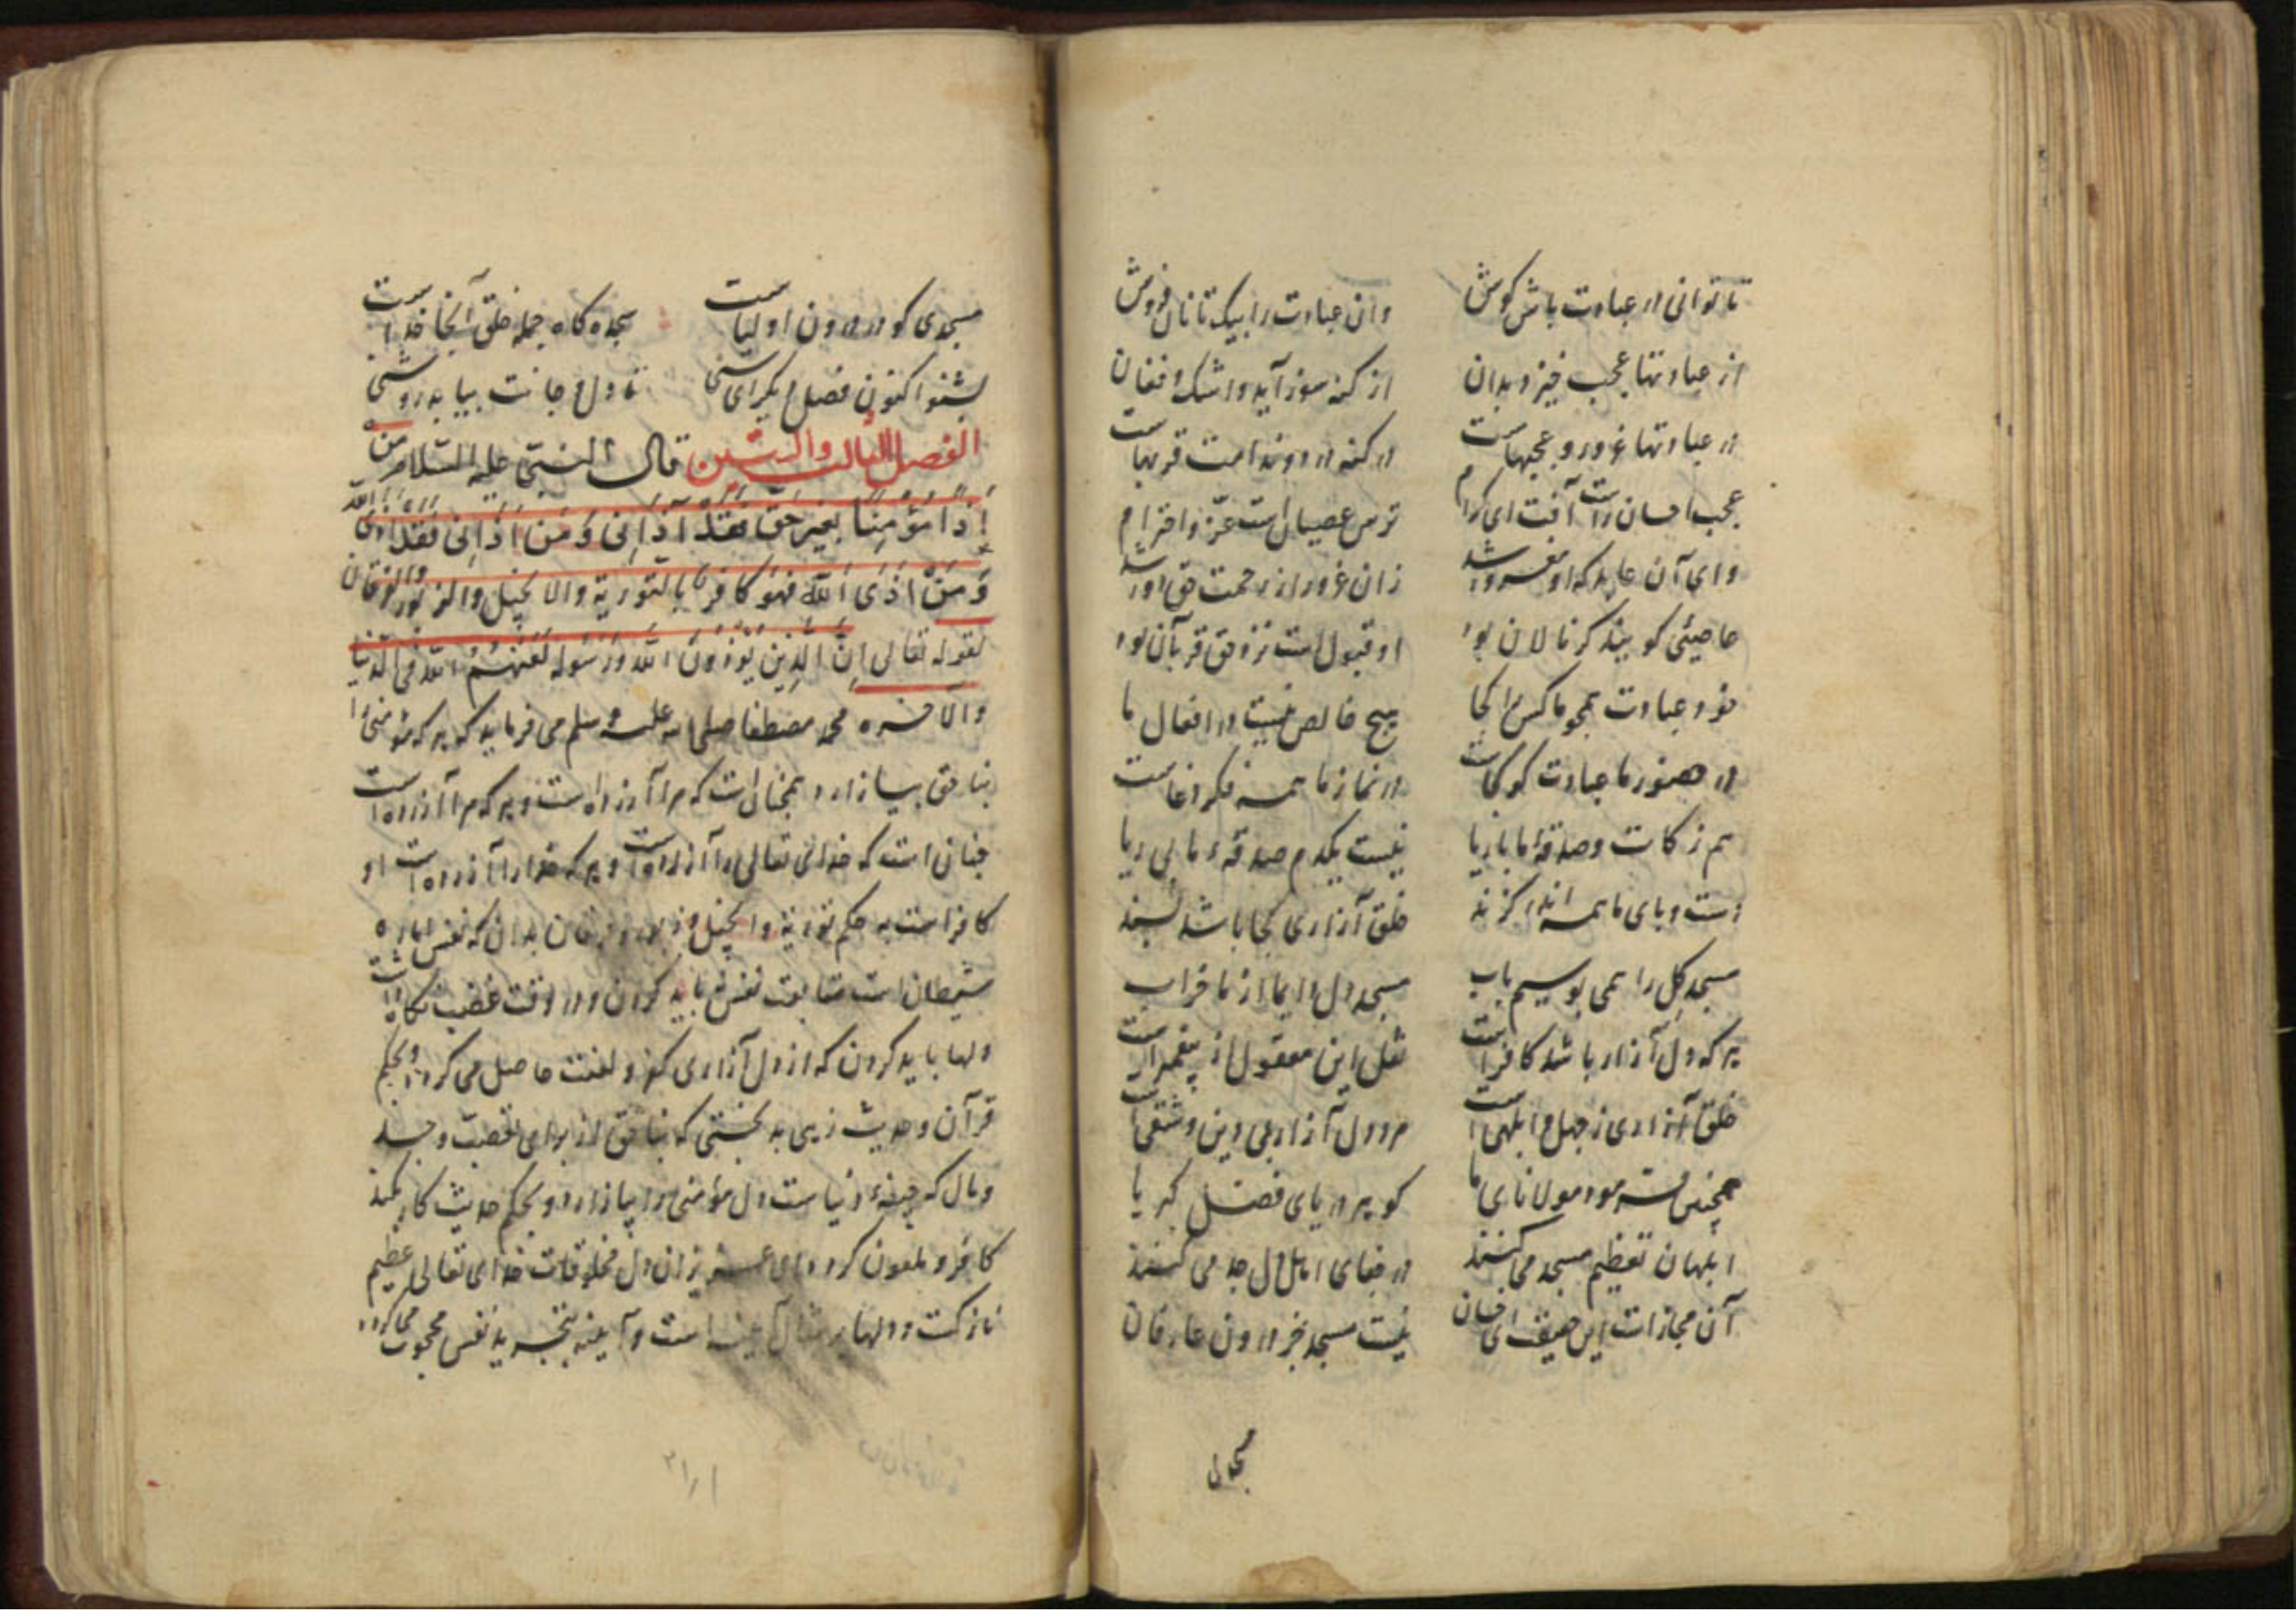 تا توانی در عبادت باش کوش وان عبادت را بیک تا نان فروش
از عبادتها عجب خیزد بدان از کنه سوز آید و اشک و فغان
در عبادتها غرور و عجبهاست در کنه درد و ندامت قربهاست
عجب احسان راست آفت ای کرام ترس عصیان است عز و احترام
وای آن عابد که او مغرور شد زان غرور از رحمت حق دور شد
عاصیئی کو بیند کر نالان بود او قبول است نزد حق قربان بود
خود عبادت همچو ما کس را کجا هیچ خالص نیست در افعال ما
در حضور ما عبادت کو کجاست در نماز ما همه فکر دغاست
هم زکات و صدقهٔ ما با ریا نیست یکدم صدقهٔ ما بی ریا
دست و پای ما همه اندر کزند خلق آزاری کجا باشد پسند
مسجد کل را همی بوسیم باب مسجد دل دایما از ما خراب
هر که دل آزار باشد کافر است نقل این معقول از پیغمبر است
خلق آزاری ز جهل و ابلهی است مرد دل آزار بی دین و شقی است
همچنین فرمود مولانای ما کو بر دریای فضل کبریا
ابلهان تعظیم مسجد می کنند در جفای اهل دل جد می کنند
آن مجازات این حقیقت ای خسان نیست مسجد جز درون عارفان
مسجدی
مسجدی کو در درون اولیاست سجده کاه جمله خلق آنجا خداست
بشنو اکنون فصل دیکر ای سنی تا دل و جانت بیابد روشنی
الفصل الثالث والستین قال النبی علیه السلام من
اذا مؤمنا بغیر حق فقد آذانی و من اذانی فقد اذی الله
و من اذی الله فهو کافر بالتوریة والانجیل والزبور والفرقان
لقوله تعالی ان الذین یؤذون الله ورسوله لعنهم الله فی الدنیا
والآخره محمد مصطفا صلی الله علیه وسلم می فرماید که هر که مؤمنی را
بناحق بیازارد همچنان است که مرا آزرده است و هر که مرا آزرده است
چنان است که خدای تعالی را آزرده است و هر که خدا را آزرده است او
کافر است به حکم توریة و انجیل و زبور و فرقان بدان که نفس اماره
شیطان است متابعت نفس نباید کردن و در وقت غضب نکاه داشت
دلها باید کردن که از دل آزاری کفر و لعنت حاصل می کردد و بحکم
قرآن و حدیث زهی بد بختی که بناحق از برای تعصب و حسد
و مال که جیفهٔ دنیاست دل مؤمنی را بیازارد و بحکم حدیث کار کند
کافر و ملعون کردد ای عزیزان دل مخلوقات خدای تعالی عظیم
نازکست و دلها بر مثال است و آیینه نفس محجوب